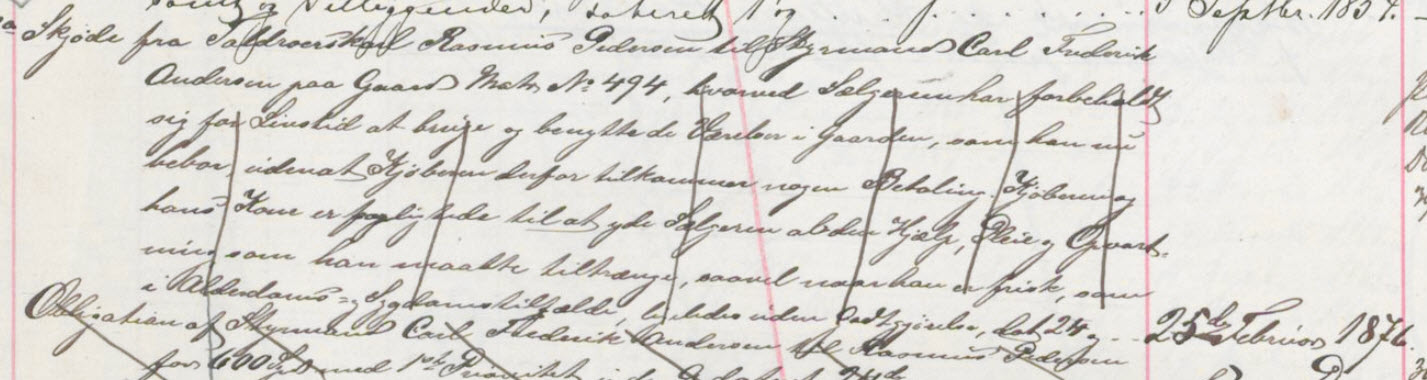 og Tilliggender, dateret 1 og 5 Septbr. 1857.
Skjøde fra Toldroerskarl Rasmus Pedersen til Styrmand Carl Frederik
Andersen paa Gaard Matr No 494, hvorved Sælgeren har forbeholdt
sig for Livstid at bruge og benytte de Værelser i Gaarden, som han nu
bebor, uden at Kjøberen derfor tilkommer nogen Betaling. Kjøberen og
hans Kone er forpligtede til at yde Sælgeren al den Hjælp, Pleie og Opvart-
ning som han maatte tiltrænge, saavel naar han er frisk, som
i Alderdoms- og Sygdomstilfælde, ligeledes uden Godtgjørelse, dat 24 og 25de Februar 1876.
Obligation af Styrmand Carl Frederik Andersen til Rasmus Pedersen
for 600 med 1ste Prioritet